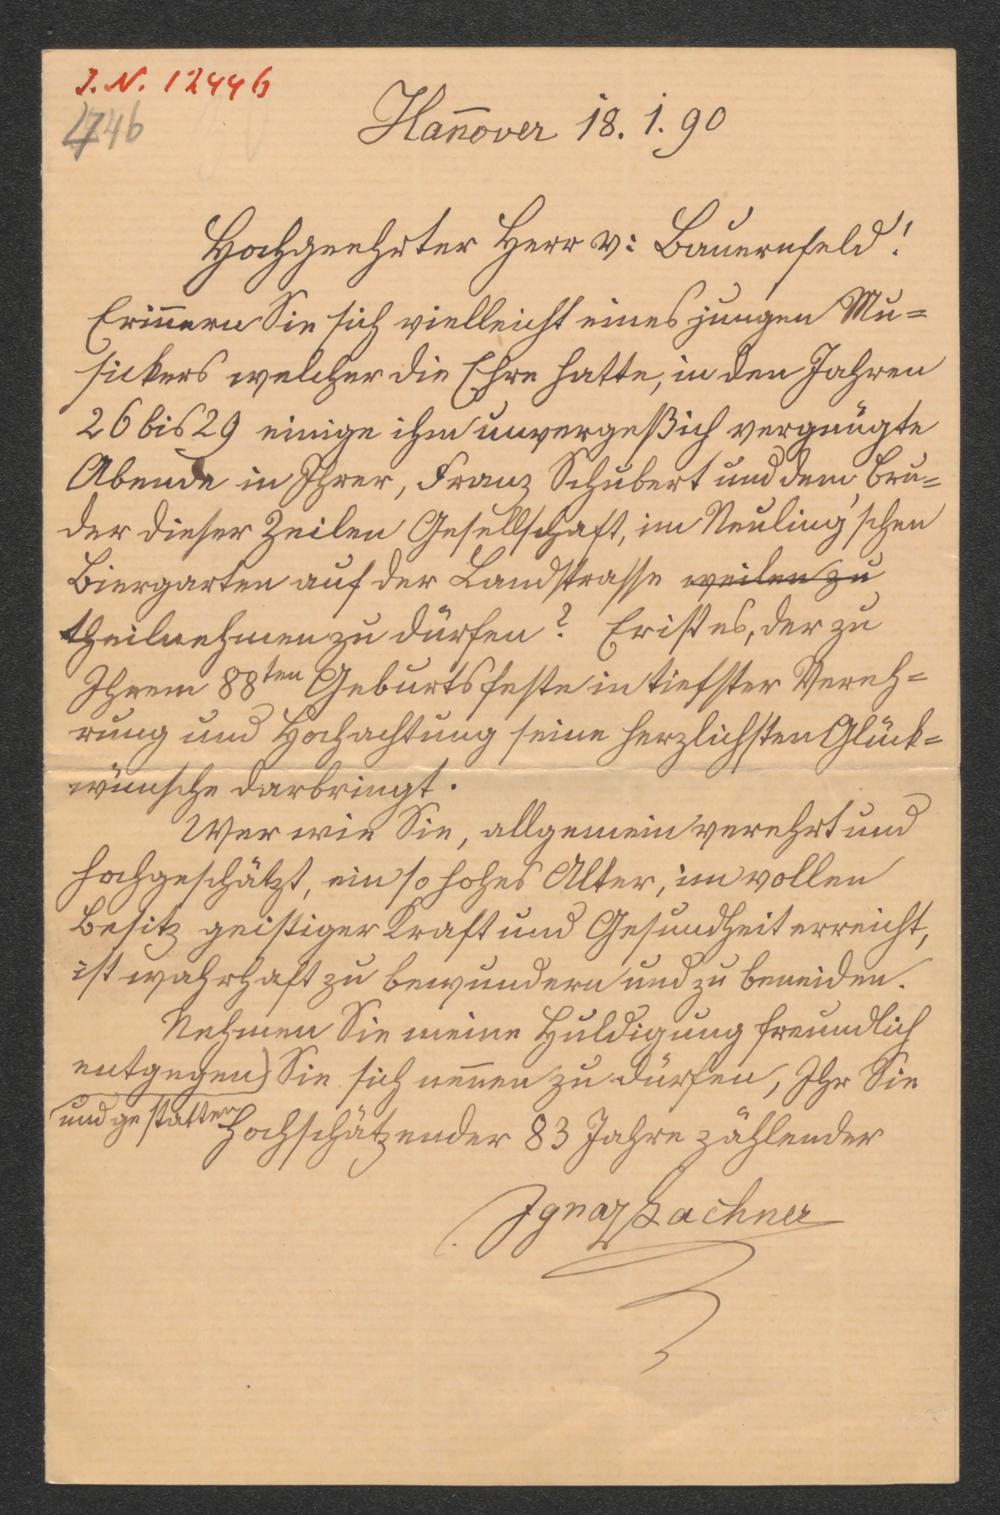 I. N. 12446
4746
Hañover 18. 1. 90
Hochgeehrter Herr v: Bauernfeld!
Eriñern Sie sich vielleicht eines jungen Mu=
sickers welcher die Ehre hatte, in den Jahren
26 bis 29 einige ihm unvergeßich vergnügte
Abende in Ihrer, Franz Schubert und dem Bru=
der dieser Zeilen Gesellschaft, im Neuling'schen
Biergarten auf der Landstrasse weilen zu
theilnehmen zu dürfen? Er ist es, der zu
Ihrem 88ten Geburtsfeste in tiefster Vereh=
rung und Hochachtung seine herzlichsten Glück=
wünsche darbringt.
Wer wie Sie, allgemein verehrt und
hochgeschätzt, ein so hohes Alter, im vollen
Besitz geistiger Kraft und Gesundheit erreicht,
ist wahrhaft zu bewundern und zu beneiden.
Nehmen Sie meine Huldigung freundlich
entgegen) Sie sich nennen zu dürfen, Ihr Sie
und gestatten hochschätzender 83 Jahre zählender
Ignaz Lachner